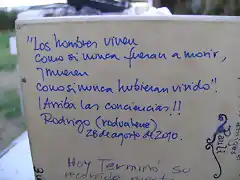 "Los hombres viven
como si nunca fueran a morir,
y mueren
como si nunca hubieran vivido".
¡Arriba las conciencias!!
Rodrigo
28 de agosto de 2010.
Hoy Terminó su